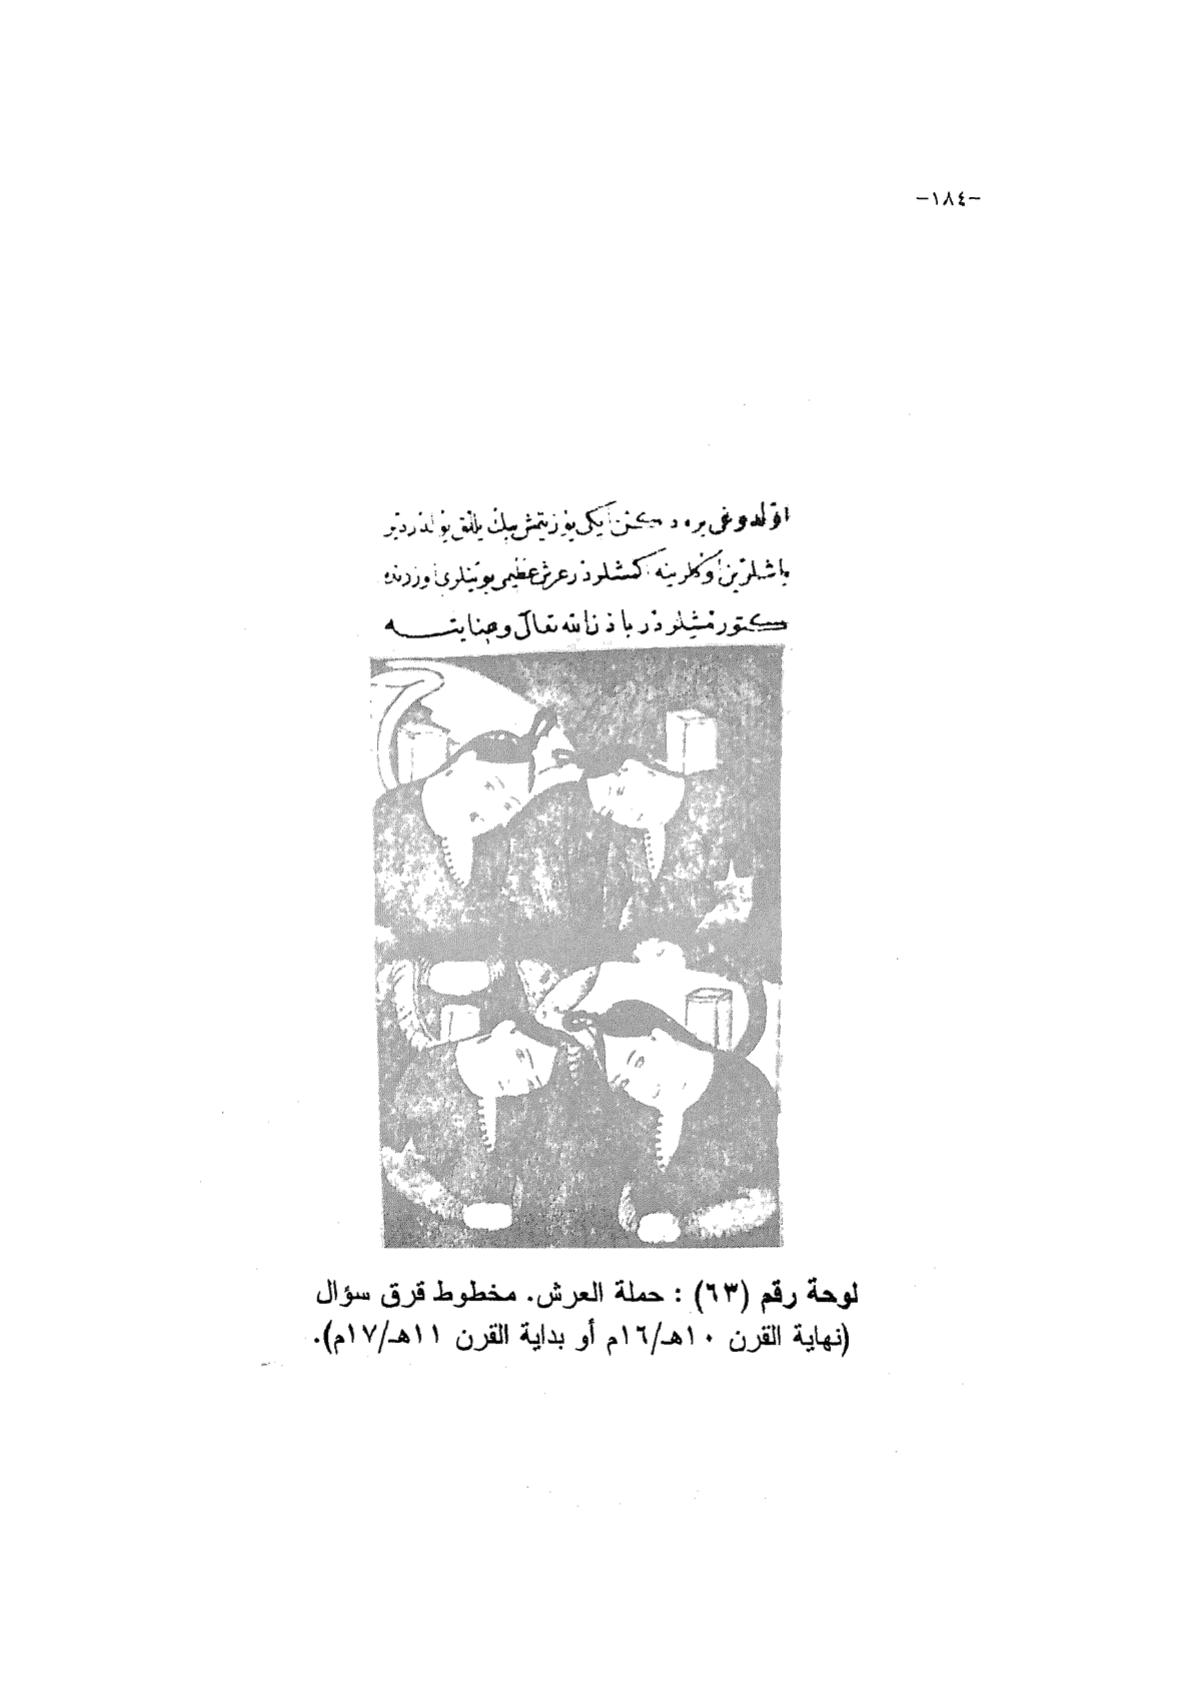 -١٨٤-
اولدوغی یره دکن ایکی یوز یتمش بیك ییللق یولدر دیر
باشلرین اوکلرینه اکمشلردر عرش عظیمی بوینلری اوزرنده
کتورمشلردر باذن الله تعالی وعنایته
لوحة رقم (٦٣) : حملة العرش. مخطوط قرق سؤال
(نهاية القرن ١٠هـ/١٦م أو بداية القرن ١١هـ/١٧م).